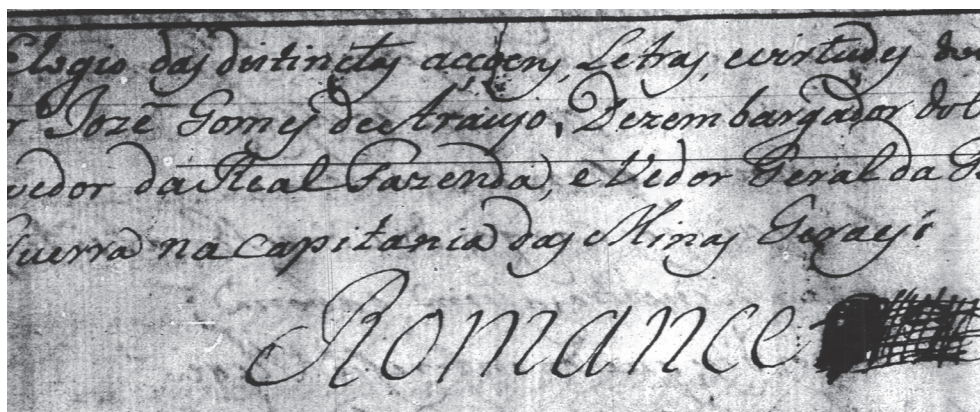 Elogio das distinctas acçoens, Letras, evirtudes
Jozê Gomes de Araujo, Dezembargador do
vedor da Real Fazenda, e Vedor Geral da
Guerra na capitania das Minas Geraes
Romance